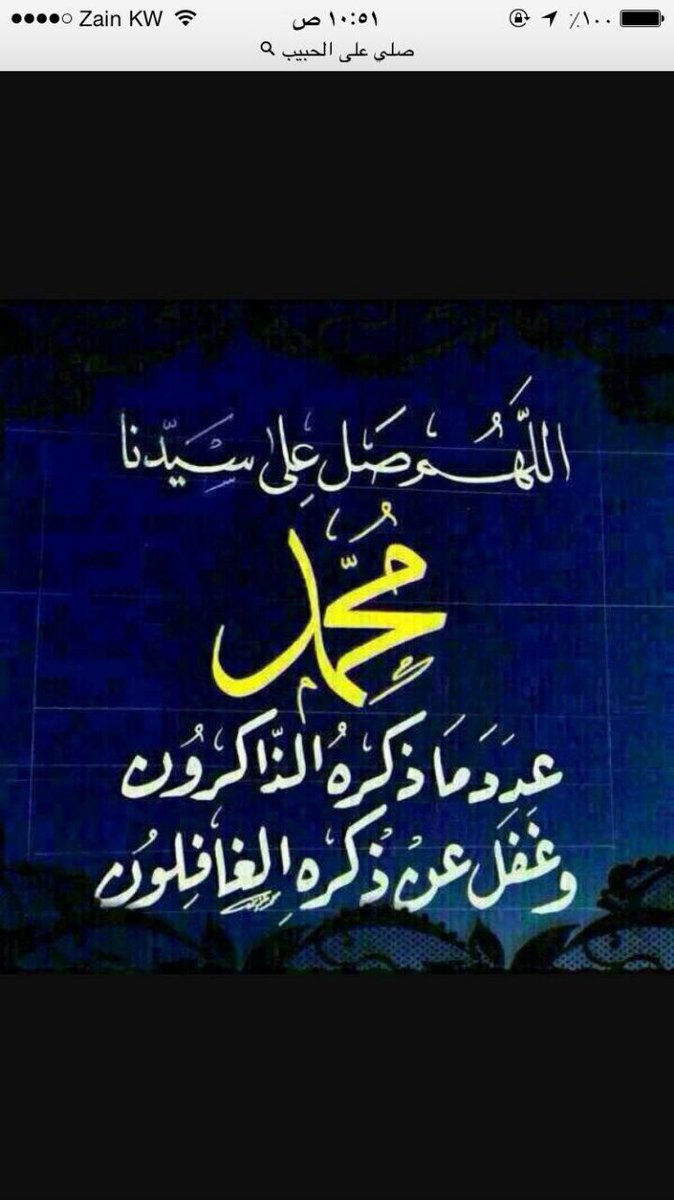 Zain KW ١٠:٥١ ص ٪١٠٠
صلي على الحبيب
اللَّهُم صَل عِلى سَيِّدنا
مُحمَّد
عدَدَ مَا ذكرهُ الذَّاكرُون
وغَفَل عنْ ذكرهِ الغافِلُون